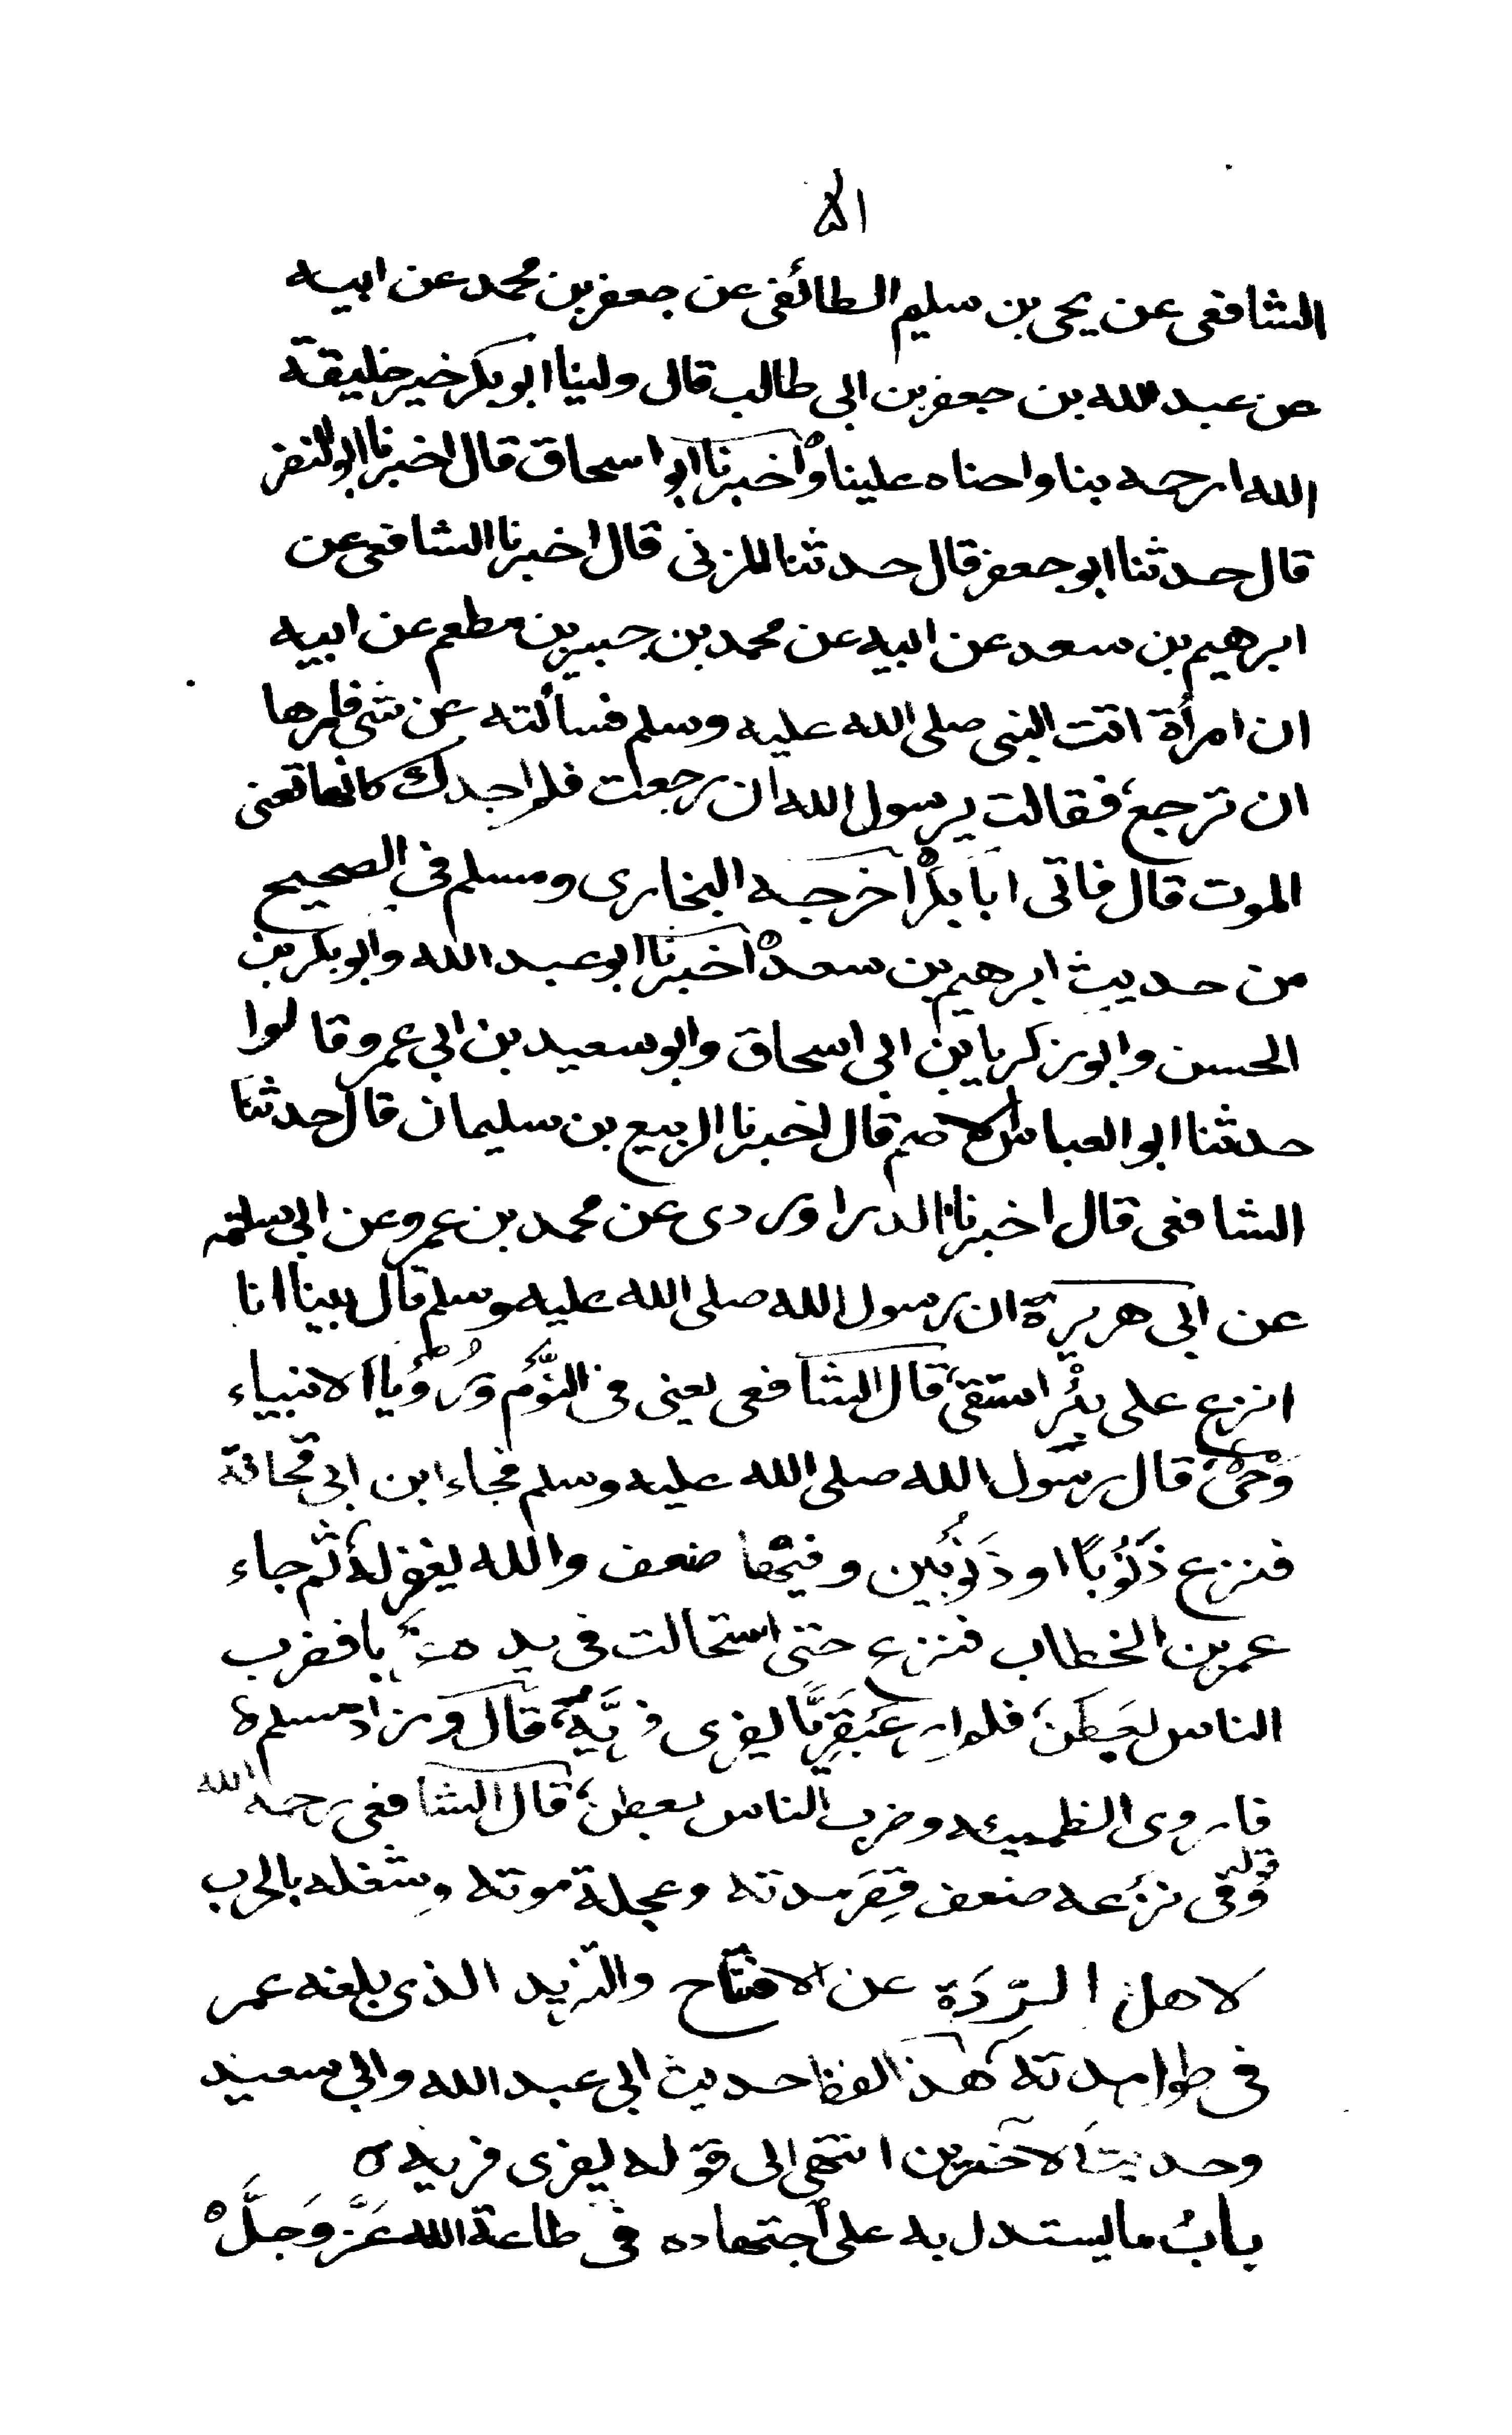 الشافعى عن يحيى بن سليم الطائفى عن جعفر بن محمد عن ابيه
عن عبد الله بن جعفر بن ابى طالب قال ولينا ابو بكر خير خليقة
الله ارحمه بنا واحناه علينا واخبرنا ابو اسحاق قال اخبرنا ابو النضر
قال حدثنا ابو جعفر قال حدثنا المزنى قال اخبرنا الشافعى عن
ابرهيم بن سعد عن ابيه عن محمد بن جبير بن مطعم عن ابيه
ان امرأة اتت النبى صلى الله عليه وسلم فسألته عن شى فامرها
ان ترجع، فقالت يرسول الله ان رجعت فلم اجدك كانها تعنى
الموت قال فاتى ابا بكر اخرجه البخارى ومسلم فى الصحيح
من حديث ابرهيم بن سعد ه اخبرنا ابو عبد الله وابو بكر بن
الحسن وابو زكريا بن ابى اسحاق وابو سعيد بن ابى عمرو قالوا
حدثنا ابو العباس الاصم قال اخبرنا الربيع بن سليمان قال حدثنا
الشافعى قال اخبرنا الدراوردى عن محمد بن عمرو عن ابى سلمة
عن ابى هريرة ان رسول الله صلى الله عليه وسلم قال بينا انا
انزع على بئر استقى، قال الشافعى يعنى فى النوم ورُؤيا الانبياء
وَحْىٌ قال رسول الله صلى الله عليه وسلم فجاء ابن ابى قحافة
فنزع ذَنُوبًا او ذَنُوبَين وفيهما ضعف والله يغفر له، ثم جاء
عمر بن الخطاب فنزع حتى استحالت فى يده غربا فضرب
الناس بعَطَن، فلم ار عَبْقَرِيًّا يفرى فريَّه، قال وزاد مسلم ه
فاروى الظميئه وضرب الناس بعطن، قال الشافعى رحمه الله
قوله
وفى نزعه ضعف قِصَر مدته وعجلة موته وشغله بالحرب
لاهل الرّدَة عن الافتتاح والتزيد الذى بلغه عمر
فى طول مدته هذا لفظ حديث ابى عبد الله وابى سعيد
وحديث الاخرين انتهى الى قوله يفرى فريه ه
بابُ ما يستدل به على اجتهاده فى طاعة الله عَزَّ وَجَلَّ ه